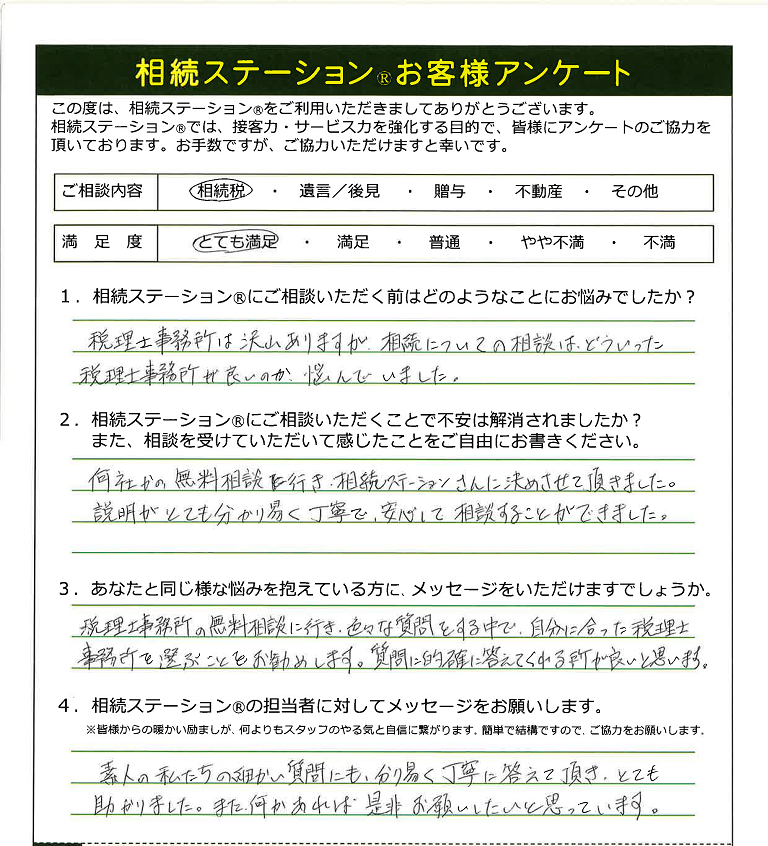 相続ステーション®お客様アンケート
この度は、相続ステーション®をご利用いただきましてありがとうございます。
相続ステーション®では、接客力・サービス力を強化する目的で、皆様にアンケートのご協力を
頂いております。お手数ですが、ご協力いただけますと幸いです。
ご相談内容 相続税 ・ 遺言／後見 ・ 贈与 ・ 不動産 ・ その他
満足度 とても満足 ・ 満足 ・ 普通 ・ やや不満 ・ 不満
１．相続ステーション®にご相談いただく前はどのようなことにお悩みでしたか？
税理士事務所は沢山ありますが、相続についての相談は、どういった
税理士事務所が良いのか、悩んでいました。
２．相続ステーション®にご相談いただくことで不安は解消されましたか？
また、相談を受けていただいて感じたことをご自由にお書きください。
何社かの無料相談に行き、相続ステーションさんに決めさせて頂きました。
説明がとても分かり易く丁寧で、安心して相談することができました。
３．あなたと同じ様な悩みを抱えている方に、メッセージをいただけますでしょうか。
税理士事務所の無料相談に行き、色々な質問をする中で、自分に合った税理士
事務所を選ぶことをお勧めします。質問に的確に答えてくれる所が良いと思います。
４．相続ステーション®の担当者に対してメッセージをお願いします。
※皆様からの暖かい励ましが、何よりもスタッフのやる気と自信に繋がります。簡単で結構ですので、ご協力をお願いします。
素人の私たちの細かい質問にも、分り易く丁寧に答えて頂き、とても
助かりました。また何かあれば是非お願いしたいと思っています。